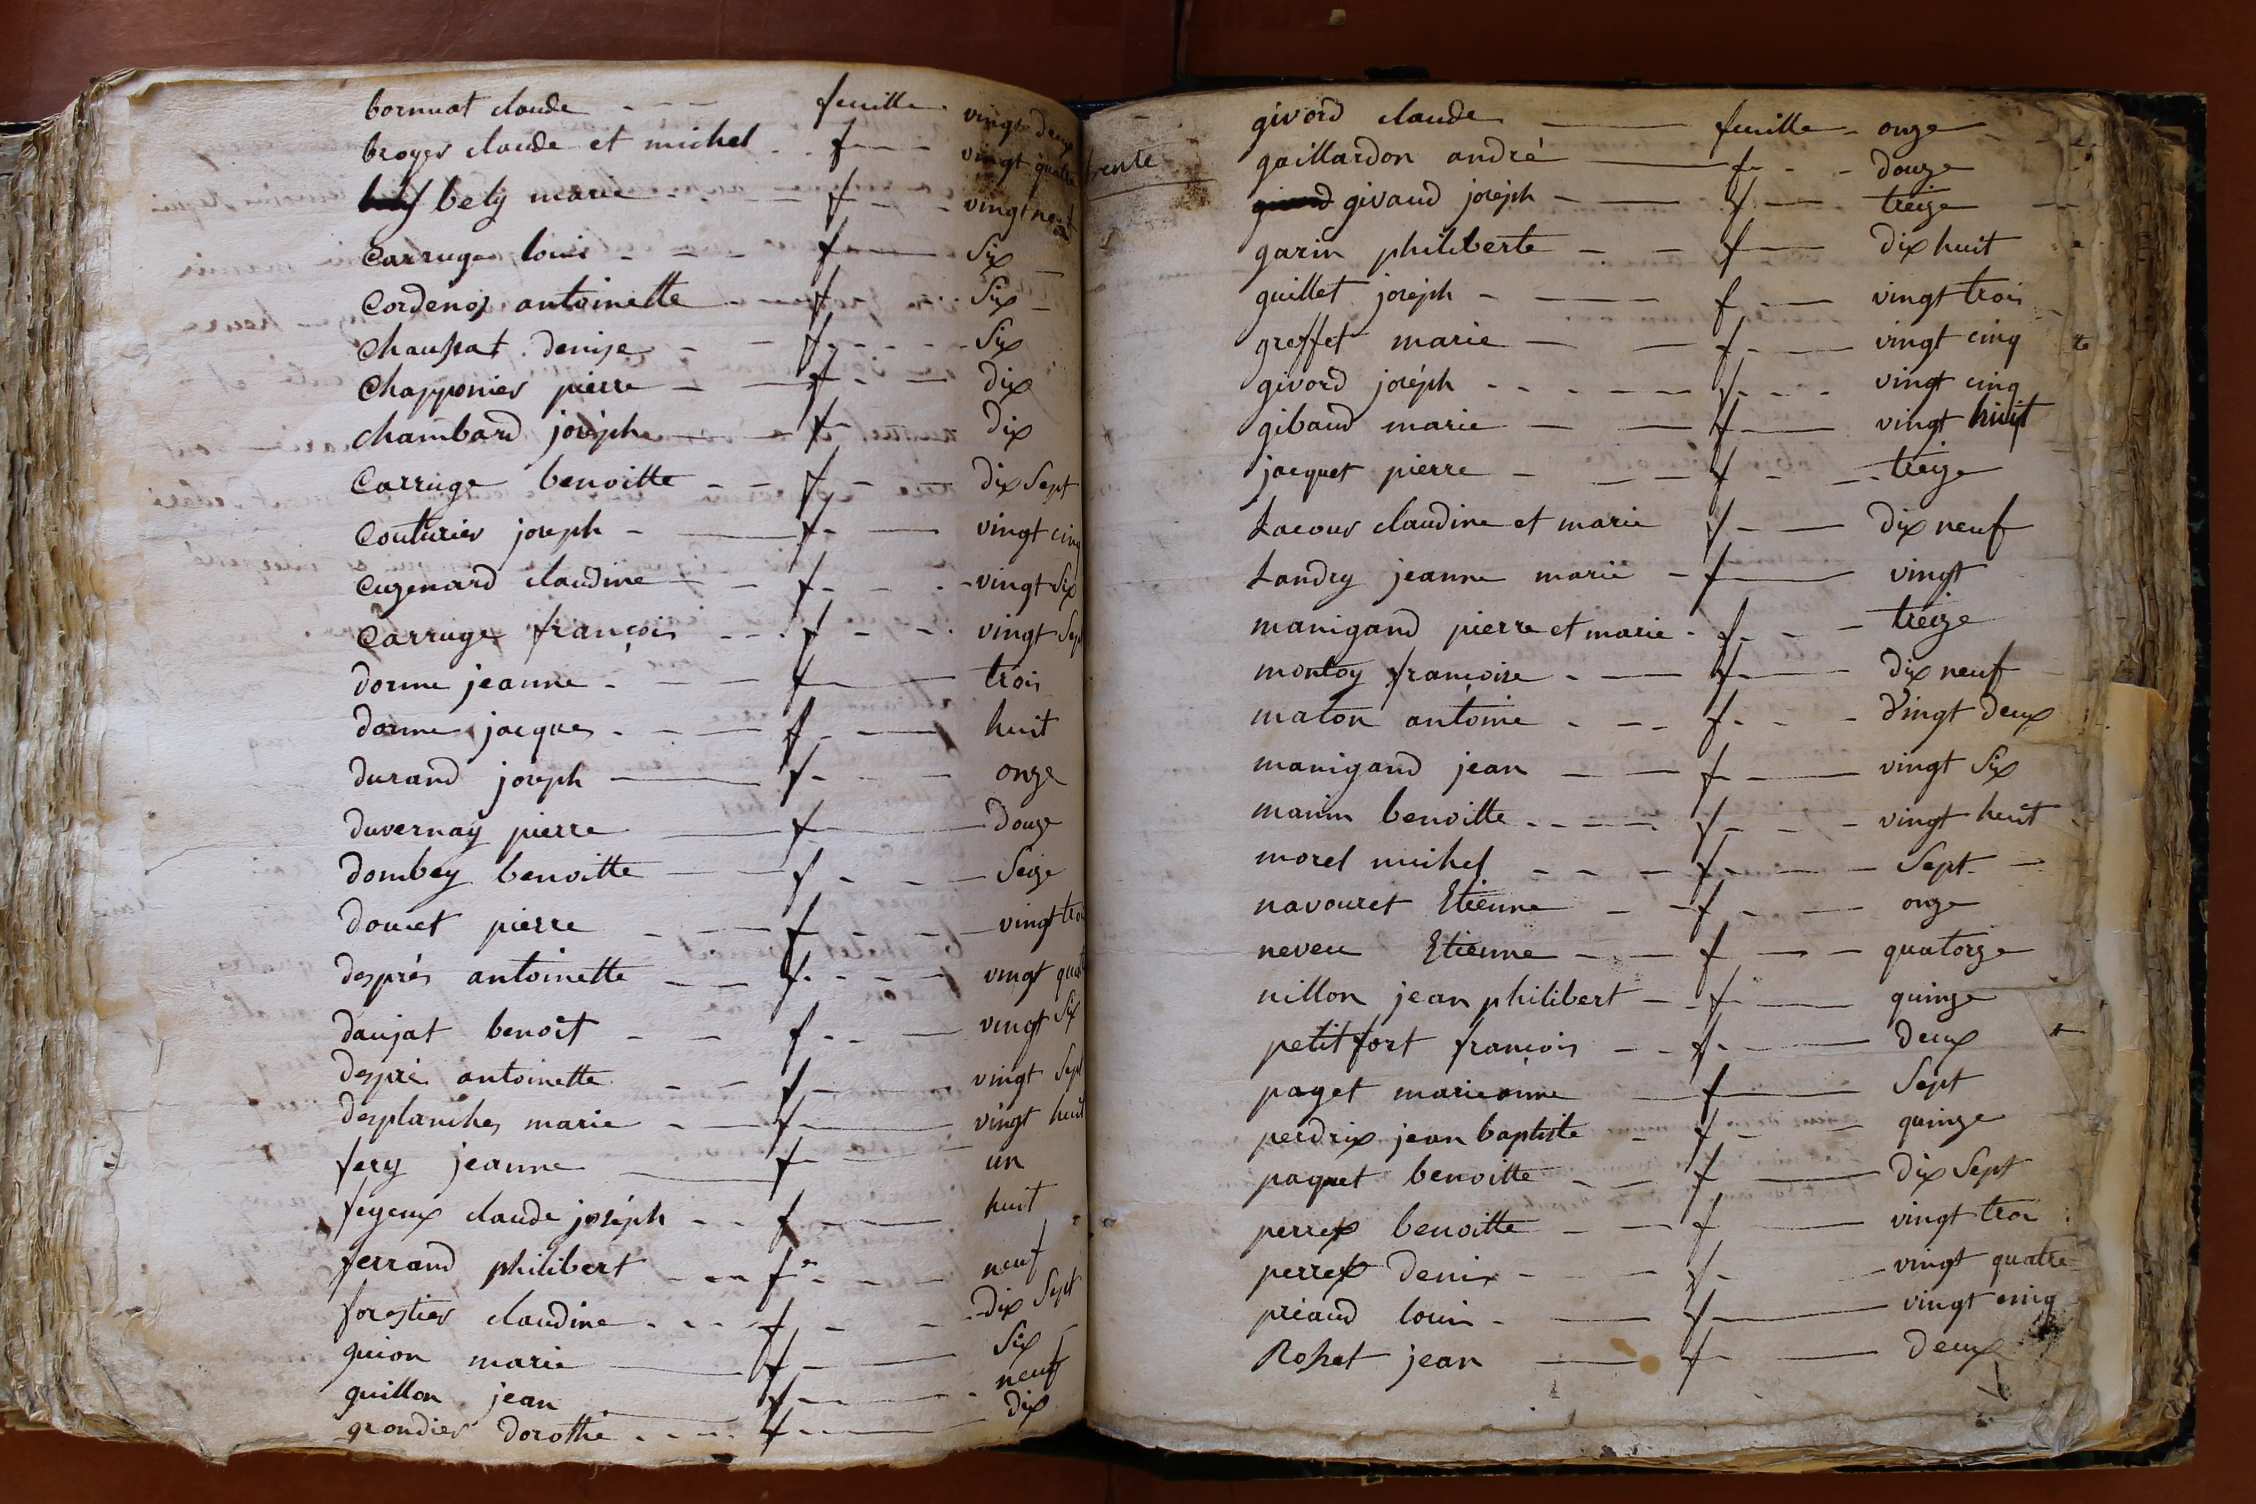 bornuat claude - - - feuille vingt deux
broyer claude et michel - - f - - - vingt quatre
bely marie - - - f - - - vingt neuf
Carruge louis - - - f - - - Six
Cordenos antoinette - - f - - - Six
Chaussat denise - - f - - - - Six
Chapponier pierre - - f - - - dix
chambard joséph - - f - - dix
Carruge benoitte - - f - - dix Sept
Couturier joseph - - f - - vingt cinq
Cugenard claudine - - f - - - vingt Six
Carruge françois - - - f - - - vingt Sept
dorme jeanne - - - f - - trois
dorme jacques - - - f - - huit
durand joseph - f - - - onze
duvernay pierre - f - douze
dombey benoitte - - f - - - Seize
doucet pierre - - - f - - - vingt trois
després antoinette - - f - - - vingt quatre
daujat benoît - - f - - - vingt Six
després antoinette - - f - vingt Sept
desplanches marie - - f - vingt huit
fery jeanne - f - un
feyeux claude joséph - - f - - huit
ferrand philibert - - - f - - - neuf
forestier claudine - - - f - - - dix Sept
guion marie - f - - Six
guillon jean - f - - - neuf
grondier dorothé - - - - f - - - dix
trente
givord claude - feuille - onze
gaillardon andré - f - - douze
givaud joséph - - f - - treize
garin philiberte - - - f - dix huit
guillet joséph - - - f - - vingt trois
greffet marie - - f - - vingt cinq
givord joséph - - - - - f - - - vingt cinq
gibaud marie - - f - vingt huit
jacquet pierre - - - f - - - treize
Lacour claudine et marie f - - dix neuf
Landry jeanne marie - f - vingt
manigand pierre et marie - f - - - treize
montoy françoise - - f - - dix neuf
maton antoine - - - f - - - vingt deux
manigand jean - - f - - vingt Six
manin benoitte - - - - f - - - vingt huit
morel michel - - - f - - - Sept -
navouret Etienne - - f - - onze
neveu Etienne - - f - - quatorze
nillon jean philibert - - f - - quinze
petit fort françois - - f - - deux
paget marieanne - f - Sept
perdrix jean baptiste - f - - quinze
paquet benoitte - - f - dix Sept
perrex benoitte - - f - vingt troi
perrex denis - - - f - - vingt quatre
préaud louis - - f - vingt cinq
Rosset jean - f - - deux